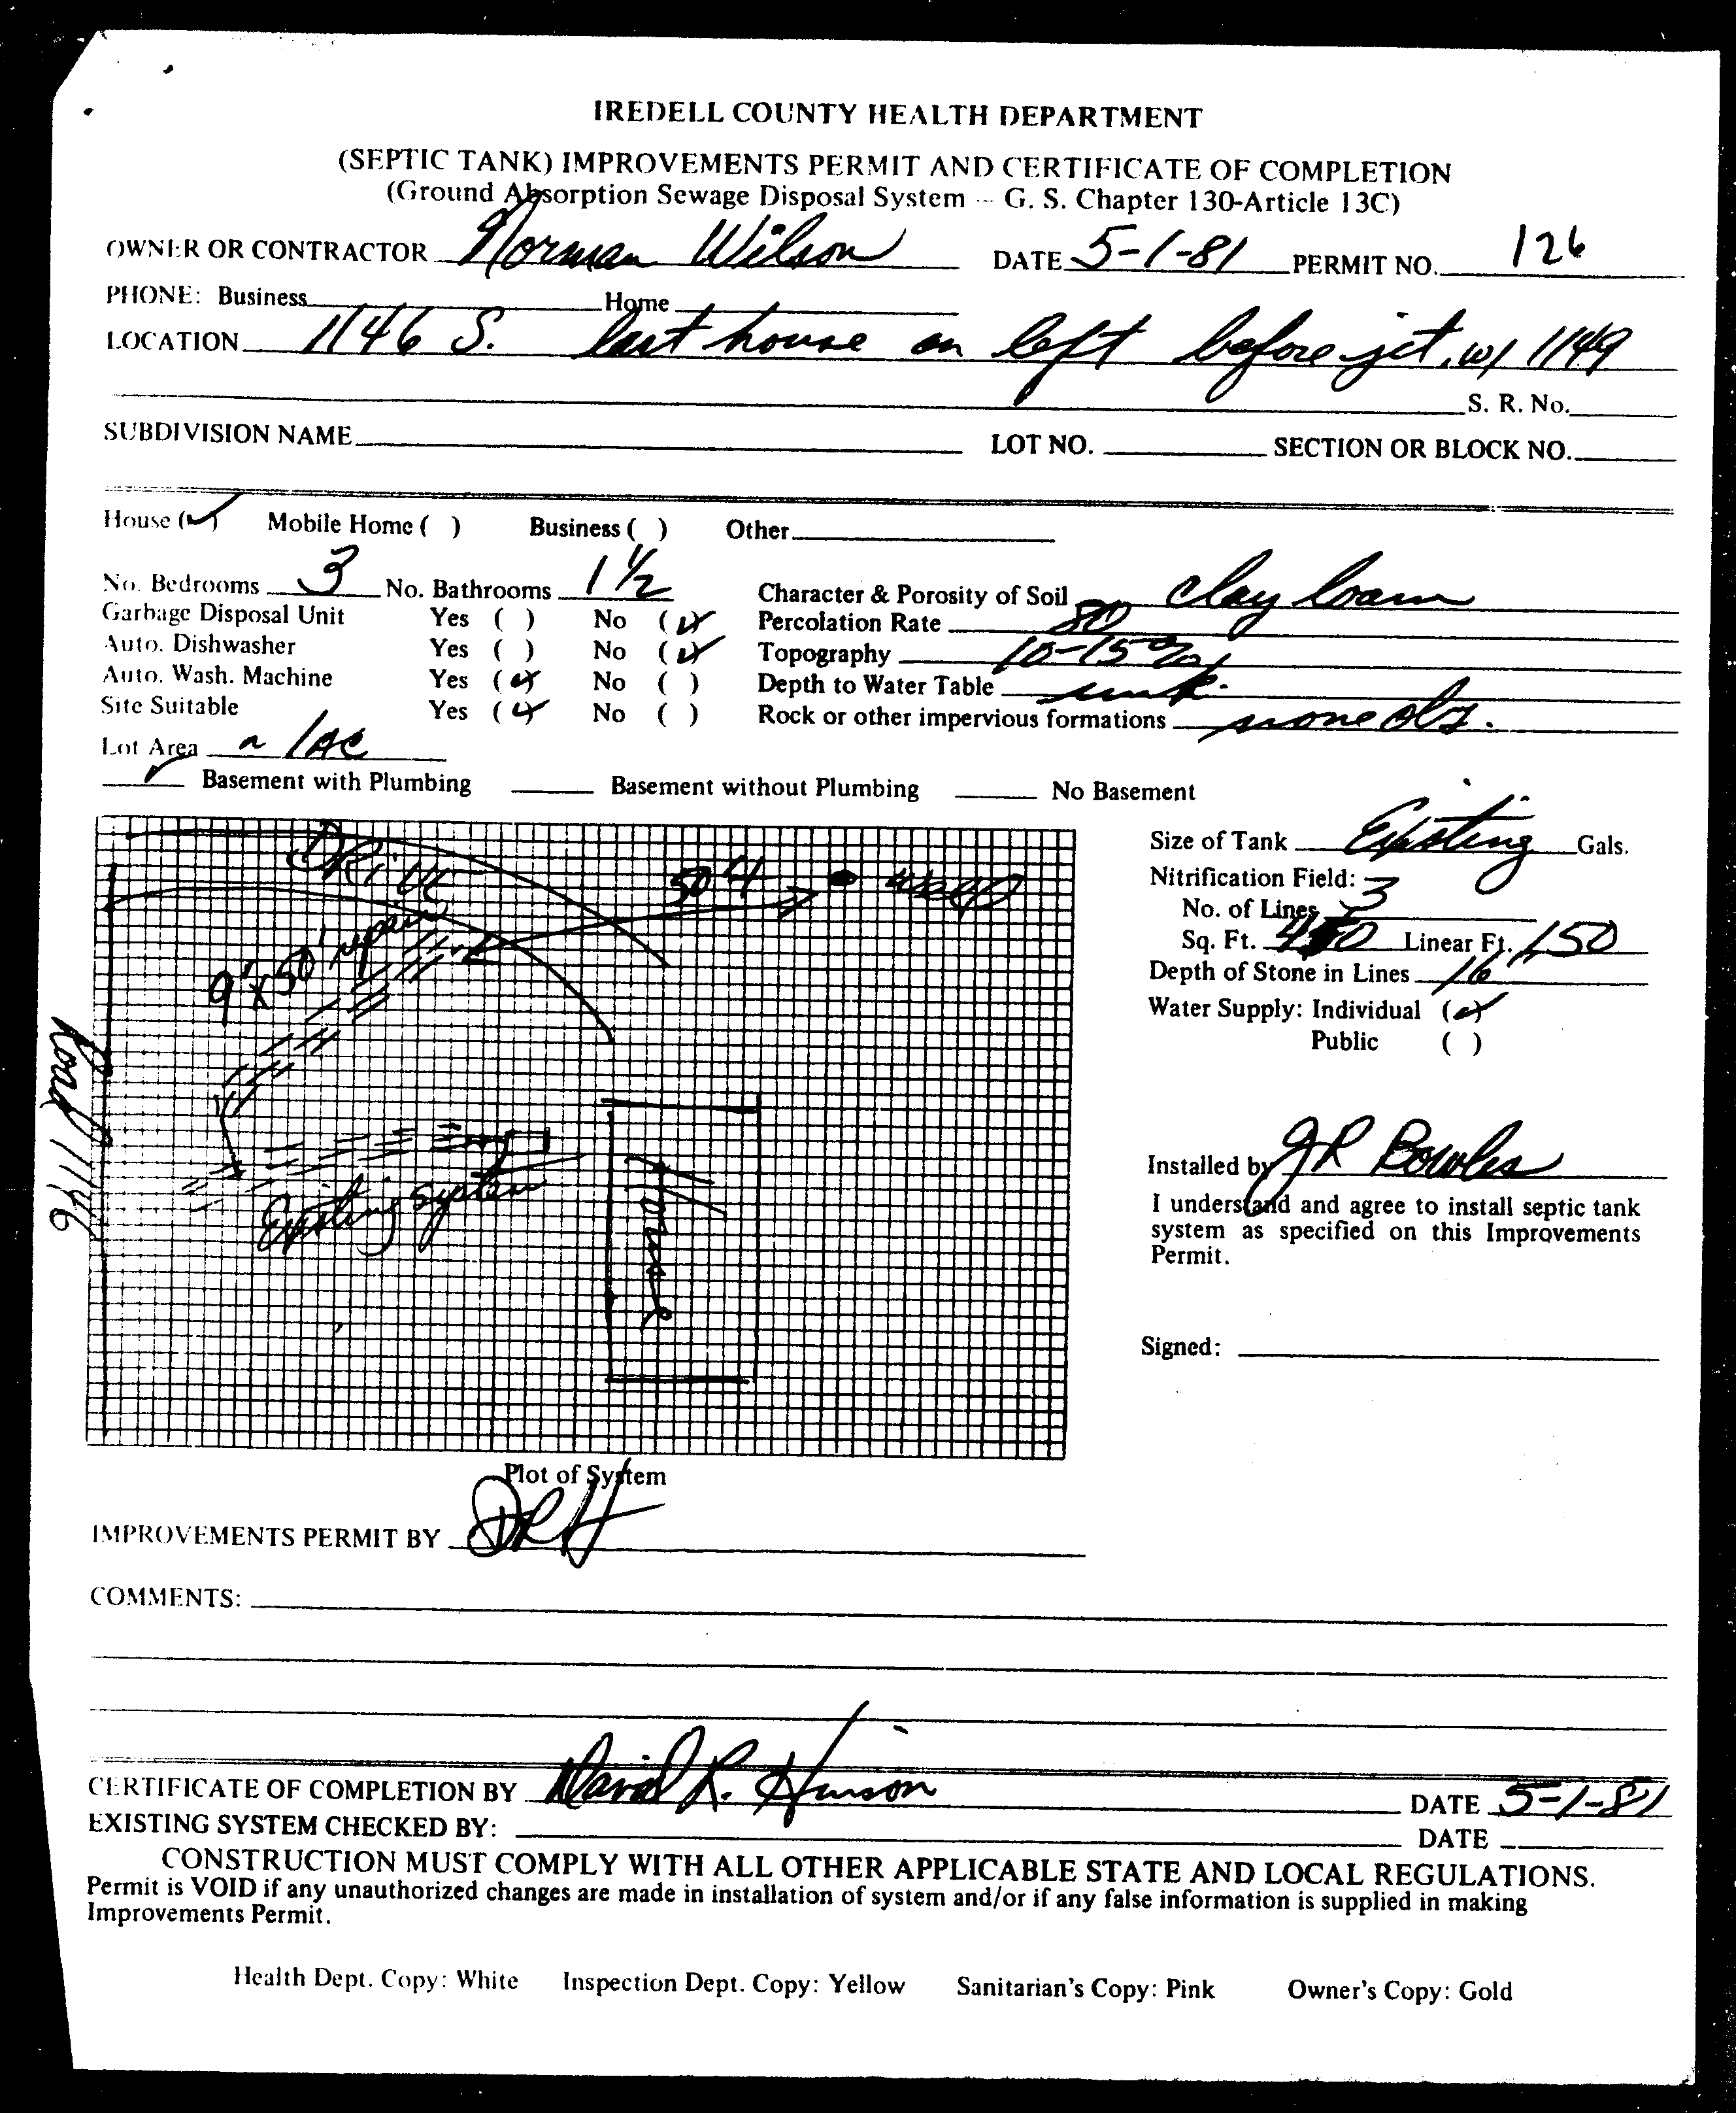 IREDELL COUNTY HEALTH DEPARTMENT
(SEPTIC TANK) IMPROVEMENTS PERMIT AND CERTIFICATE OF COMPLETION
(Ground Absorption Sewage Disposal System -- G. S. Chapter 130-Article 13C)
OWNER OR CONTRACTOR Norman Wilson DATE 5-1-81 PERMIT NO. 126
PHONE: Business Home
LOCATION 1146 S. last house on left before jct. w/ 1149
S. R. No.
SUBDIVISION NAME LOT NO. SECTION OR BLOCK NO.
House (✓) Mobile Home ( ) Business ( ) Other
No. Bedrooms 3 No. Bathrooms 1 1/2 Character & Porosity of Soil clay loam
Garbage Disposal Unit Yes ( ) No (✓) Percolation Rate 80
Auto. Dishwasher Yes ( ) No (✓) Topography 10-15%
Auto. Wash. Machine Yes (✓) No ( ) Depth to Water Table unk.
Site Suitable Yes (✓) No ( ) Rock or other impervious formations none obs.
Lot Area ~ 1 AC
✓ Basement with Plumbing Basement without Plumbing No Basement
Size of Tank Existing Gals.
Nitrification Field:
No. of Lines 3
Sq. Ft. 450 Linear Ft. 150
Depth of Stone in Lines 16
Water Supply: Individual (✓)
Public ( )
Drive
50 + well
9' x 50'
Road 1146
Existing system
House
Installed by JR Bowles
I understand and agree to install septic tank
system as specified on this Improvements
Permit.
Signed:
Plot of System
IMPROVEMENTS PERMIT BY DRH
COMMENTS:
CERTIFICATE OF COMPLETION BY David R. Hinson DATE 5-1-81
EXISTING SYSTEM CHECKED BY: DATE
CONSTRUCTION MUST COMPLY WITH ALL OTHER APPLICABLE STATE AND LOCAL REGULATIONS.
Permit is VOID if any unauthorized changes are made in installation of system and/or if any false information is supplied in making
Improvements Permit.
Health Dept. Copy: White Inspection Dept. Copy: Yellow Sanitarian's Copy: Pink Owner's Copy: Gold